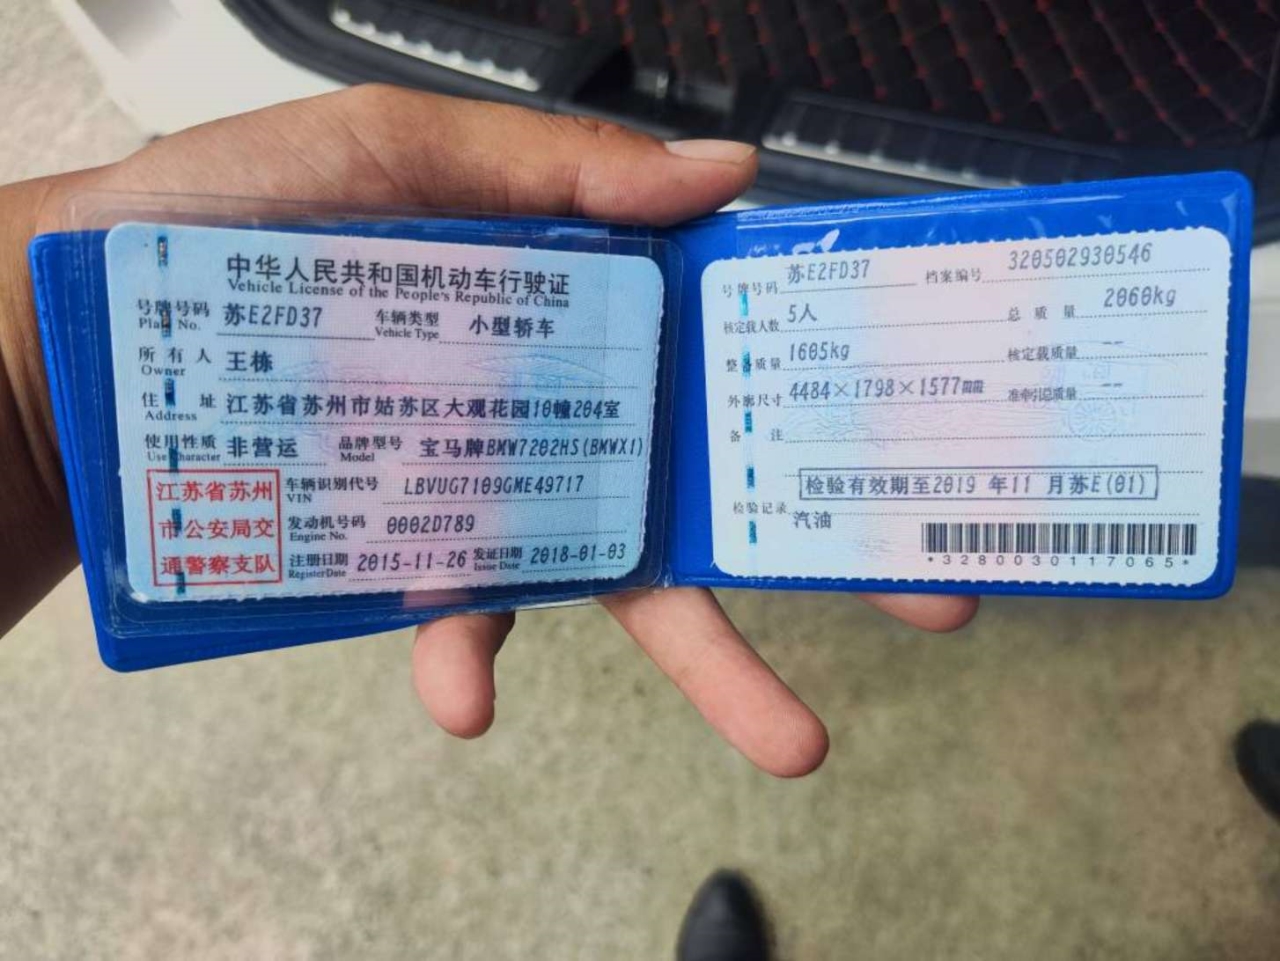 中华人民共和国机动车行驶证
Vehicle License of the People's Republic of China
号牌号码 苏E2FD37 车辆类型 小型轿车
Plate No. Vehicle Type
所有人 王栋
Owner
住址 江苏省苏州市姑苏区大观花园10幢204室
Address
使用性质 非营运 品牌型号 宝马牌BMW7202HS(BMWX1)
Use Character Model
江苏省苏州
市公安局交
通警察支队
车辆识别代号 LBVUG7109GME49717
VIN
发动机号码 0002D789
Engine No.
注册日期 2015-11-26 发证日期 2018-01-03
Register Date Issue Date
号牌号码 苏E2FD37 档案编号 320502930546
核定载人数 5人 总质量 2060kg
整备质量 1605kg 核定载质量 --
外廓尺寸 4484×1798×1577mm 准牵引总质量 --
备注
检验有效期至2019 年11 月苏E(01)
检验记录
汽油
*3280030117065*